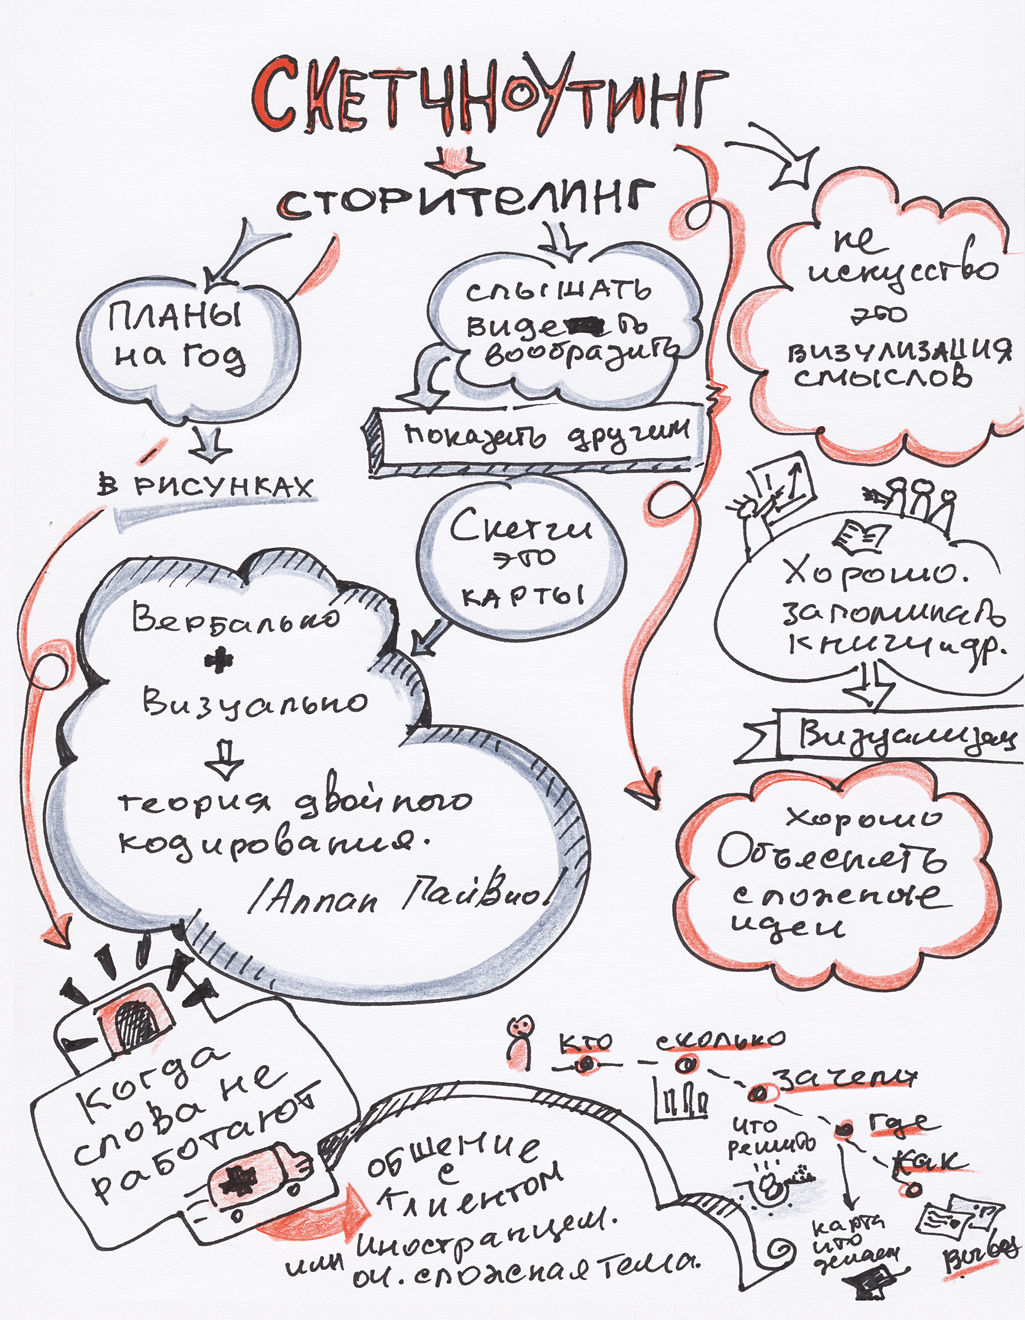 СКЕТЧНОУТИНГ
СТОРИТЕЛИНГ
ПЛАНЫ
на год
В РИСУНКАХ
СЛЫШАТЬ
ВИДЕТЬ
вообразить
показать другим
Скетчи
это
КАРТЫ
не
искусство
это
ВИЗУЛИЗАЦИЯ
СМЫСЛОВ
Хорошо.
запоминать
книги и др.
Визуализац
хорошо
Объяснять
сложные
идеи
Вербально
+
Визуально
теория двойного
кодирования.
/Аллан Пайвио/
Когда
слова не
работают
ОБЩЕНИЕ
С
КЛИЕНТОМ
или Иностранцем.
оч. сложная тема.
КТО
СКОЛЬКО
зачем
ЧТО
РЕШИТЬ
где
как
карта
что
делаем